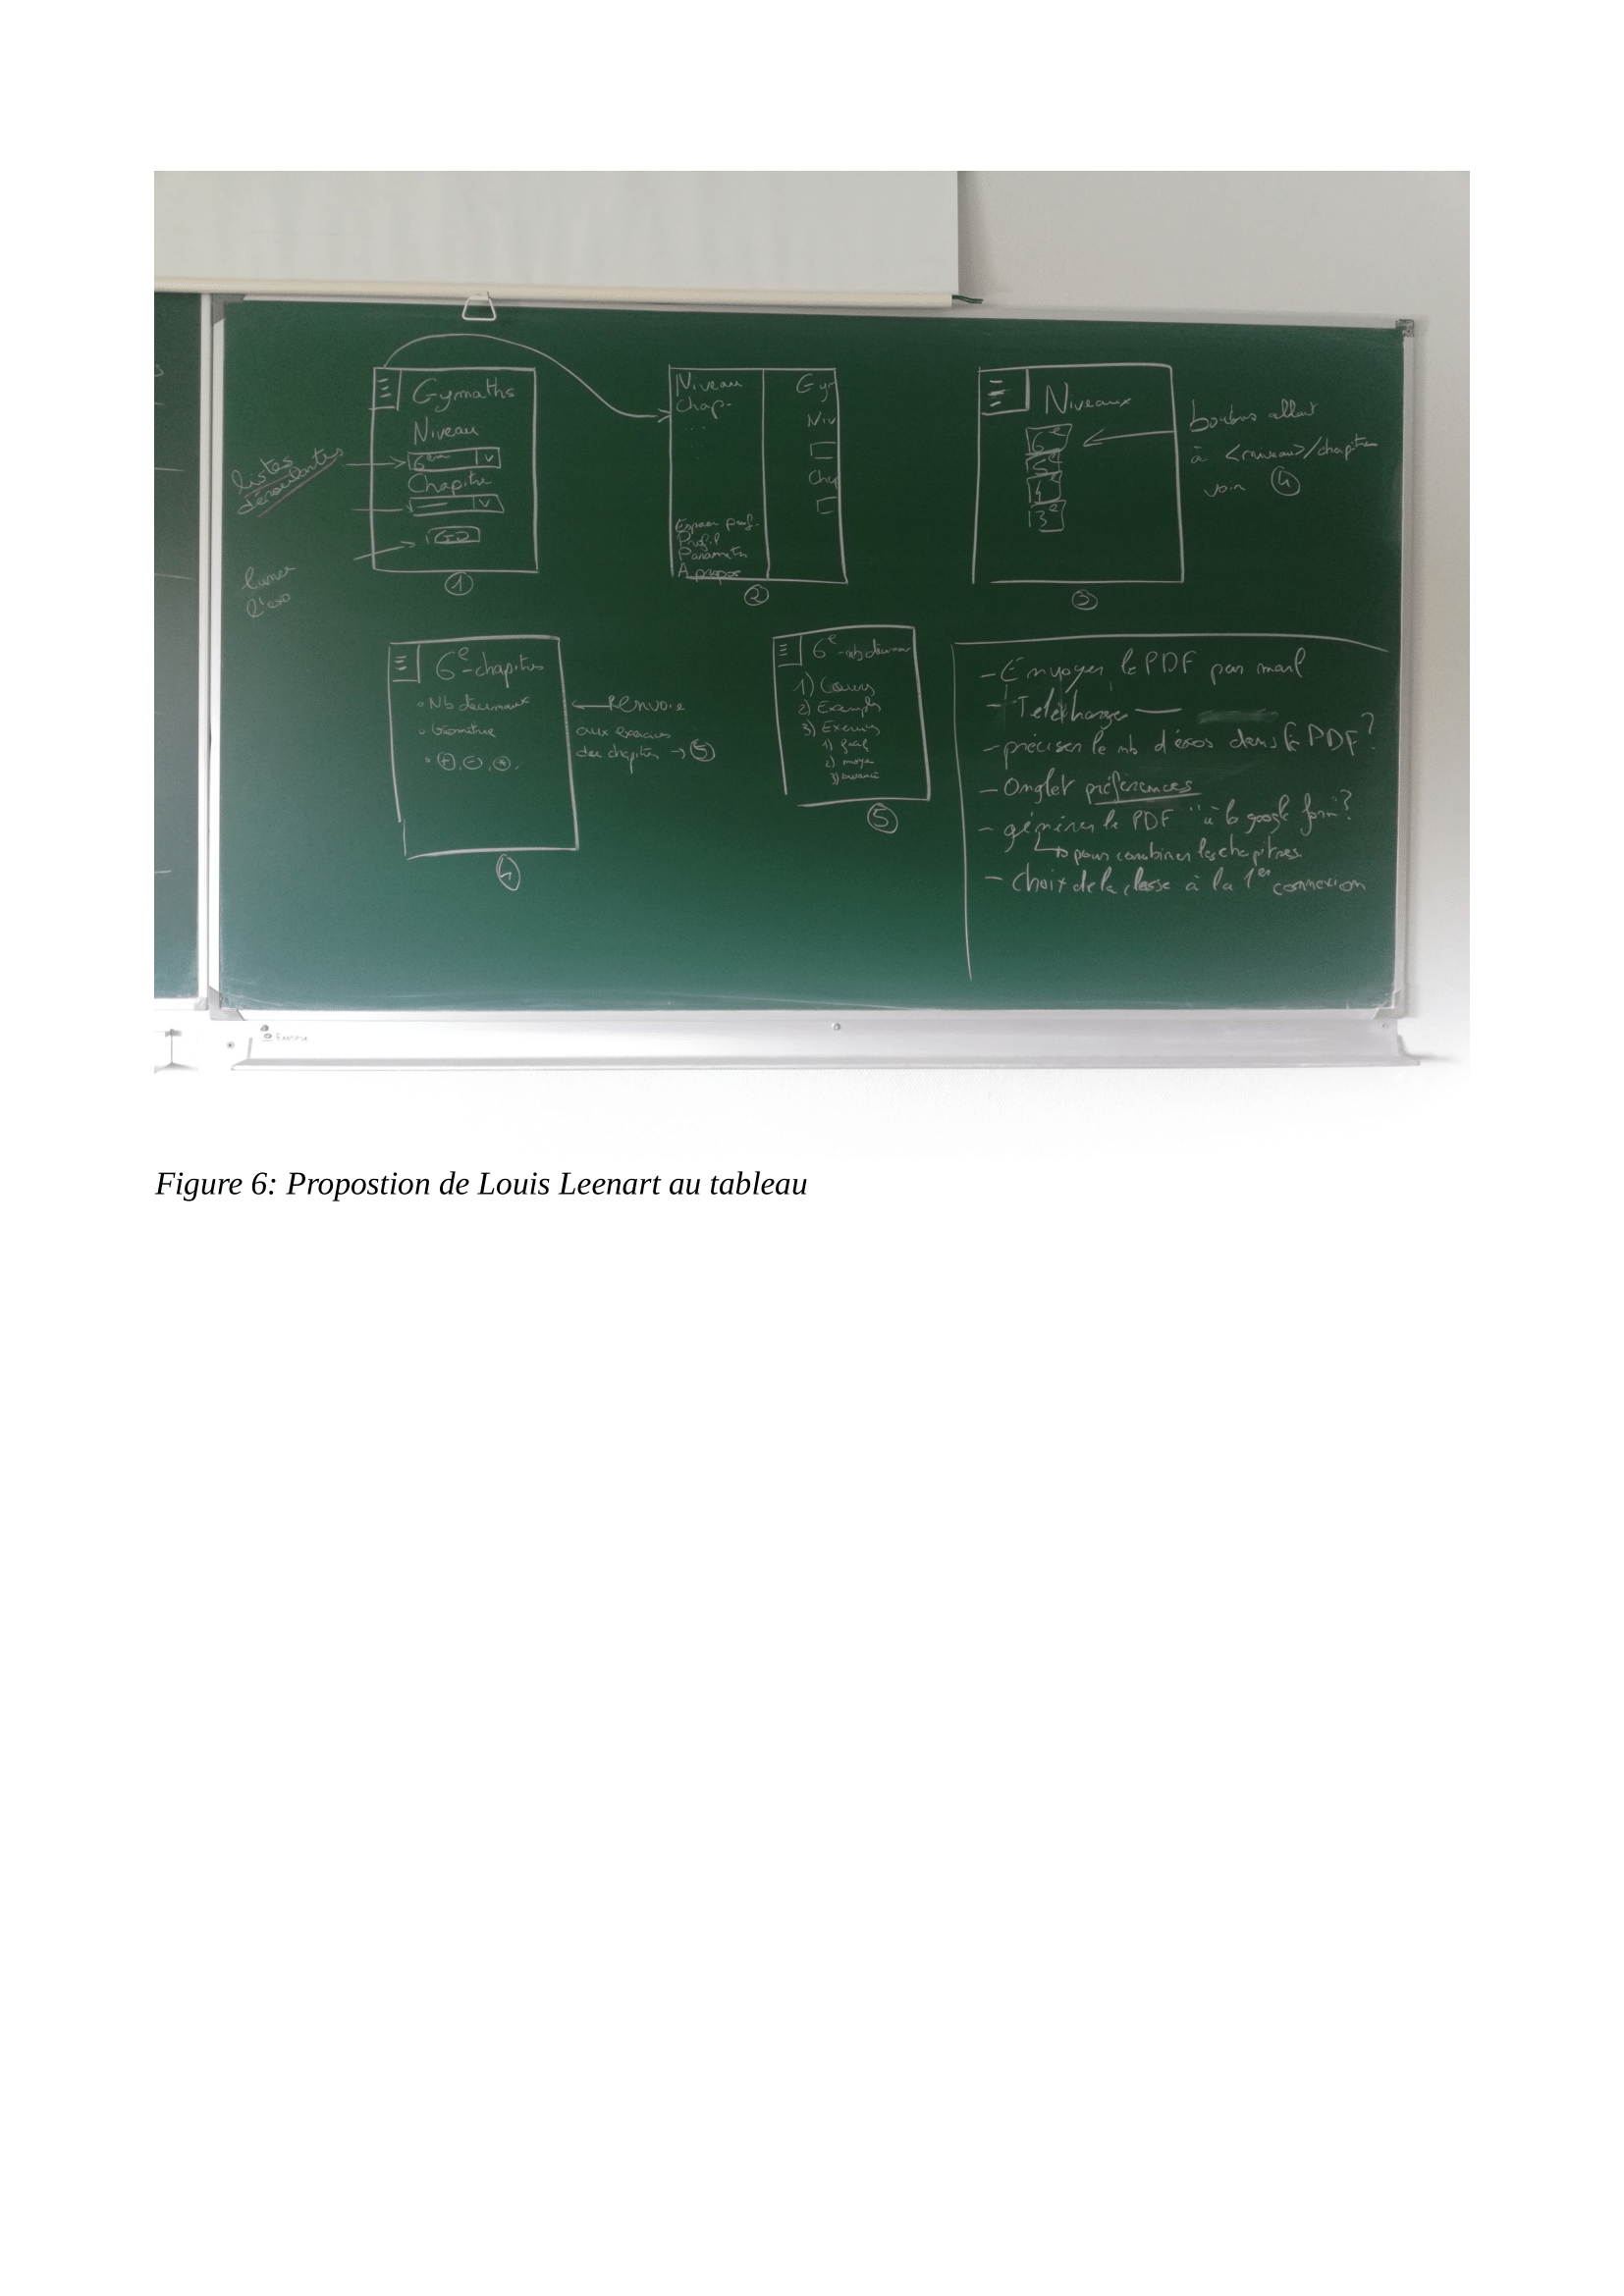 Gymaths
Niveau
6ème V
Chapitre
V
GO
listes
déroulantes
lancer
l'exo
1
Niveau
Chap.
Espace prof.
Profil
Paramètres
A propos
Gym
Niv
Chap
2
Niveaux
6e
5e
4e
3e
boutons allant
à <niveau>/chapitre
voir 4
3
6e-chapitres
Nb décimaux
Géométrie
+, -, *,
Renvoie
aux exercices
des chapitres → 5
4
6e-nb décimaux
1) Cours
2) Exemples
3) Exercices
1) facil
2) moyen
3)
5
- Envoyer le PDF par mail
- Télécharger —
- préciser le nb d'éxos dans le PDF?
- Onglet préférences
- générer le PDF "à la google form"?
↳ pour combiner les chapitres
- Choix de la classe à la 1er connexion
Figure 6: Propostion de Louis Leenart au tableau